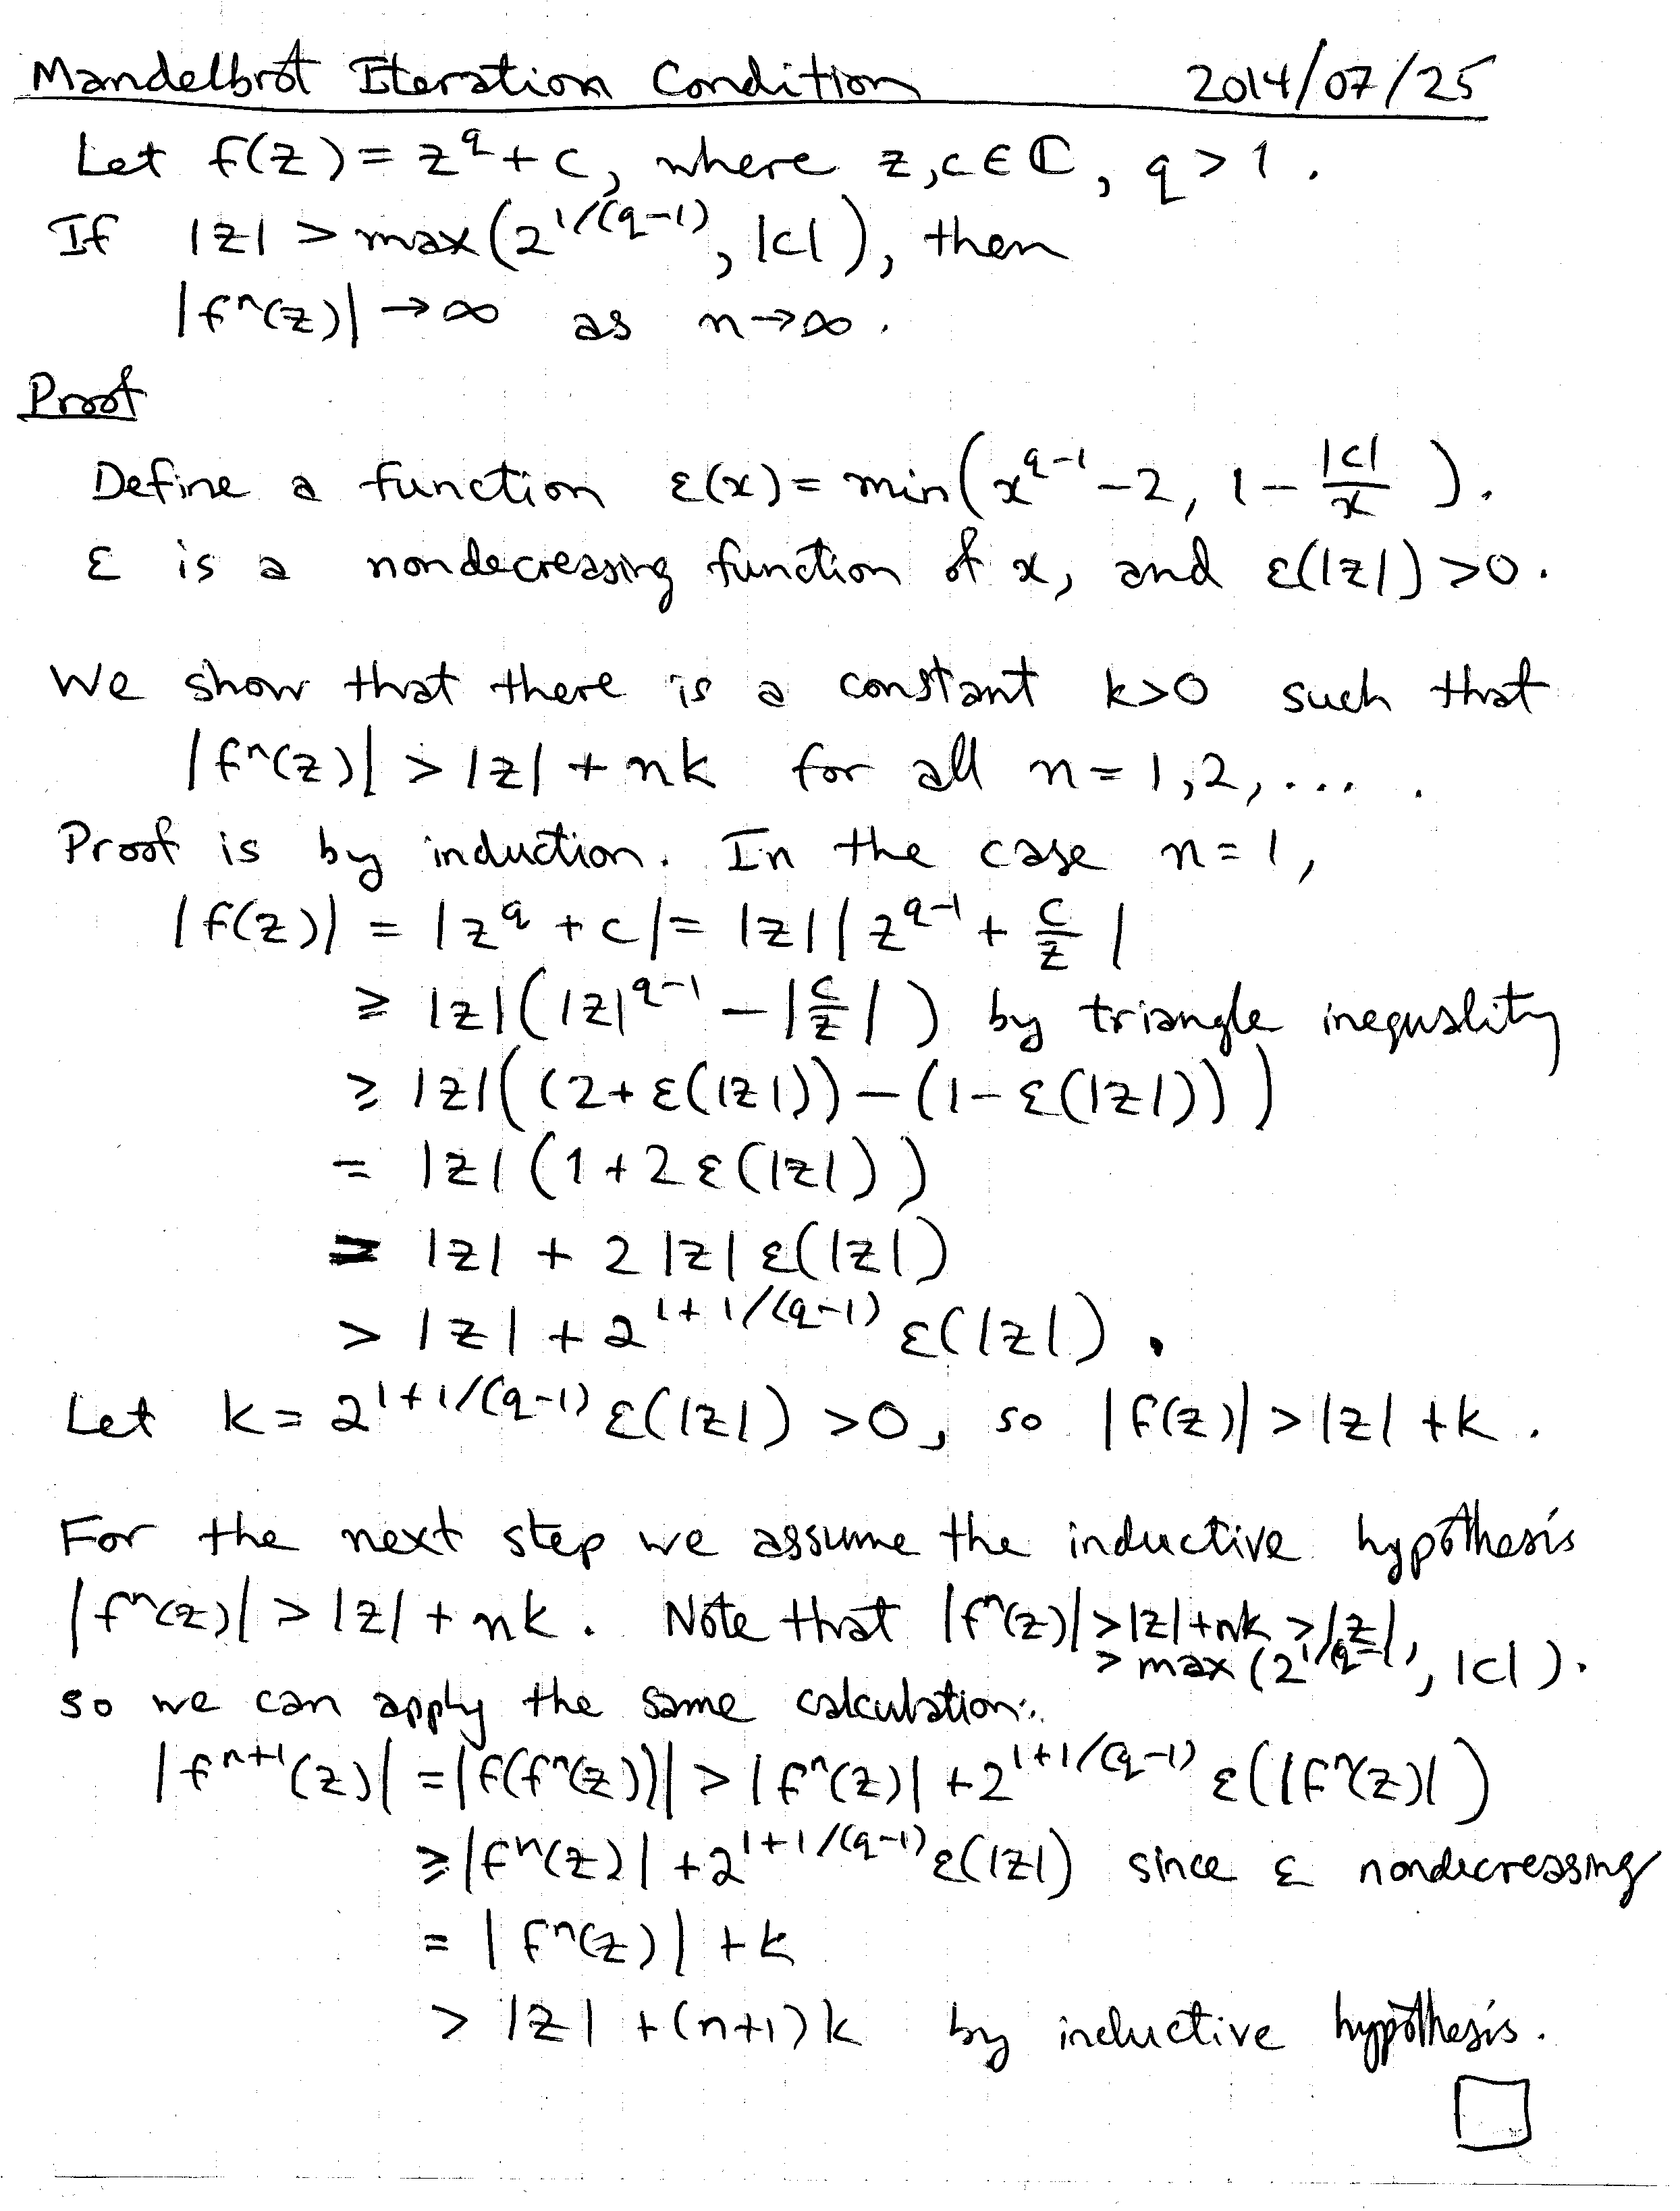 Mandelbrot Iteration Condition 2014/07/25
Let f(z) = z^q + c, where z, c ∈ ℂ, q > 1.
If |z| > max(2^{1/(q-1)}, |c|), then
|f^n(z)| → ∞ as n → ∞.
Proof
Define a function ε(x) = min(x^{q-1} - 2, 1 - |c|/x).
ε is a nondecreasing function of x, and ε(|z|) > 0.
We show that there is a constant k>0 such that
|f^n(z)| > |z| + nk for all n = 1, 2, ... .
Proof is by induction. In the case n = 1,
|f(z)| = |z^q + c| = |z| |z^{q-1} + c/z|
≥ |z|(|z|^{q-1} - |c/z|) by triangle inequality
≥ |z|((2 + ε(|z|)) - (1 - ε(|z|)))
= |z|(1 + 2ε(|z|))
= |z| + 2|z|ε(|z|)
> |z| + 2^{1+1/(q-1)} ε(|z|).
Let k = 2^{1+1/(q-1)} ε(|z|) > 0, so |f(z)| > |z| + k.
For the next step we assume the inductive hypothesis
|f^n(z)| > |z| + nk. Note that |f^n(z)| > |z| + nk > |z|
> max(2^{1/(q-1)}, |c|).
so we can apply the same calculation:
|f^{n+1}(z)| = |f(f^n(z))| > |f^n(z)| + 2^{1+1/(q-1)} ε(|f^n(z)|)
≥ |f^n(z)| + 2^{1+1/(q-1)} ε(|z|) since ε nondecreasing
= |f^n(z)| + k
> |z| + (n+1)k by inductive hypothesis.
□